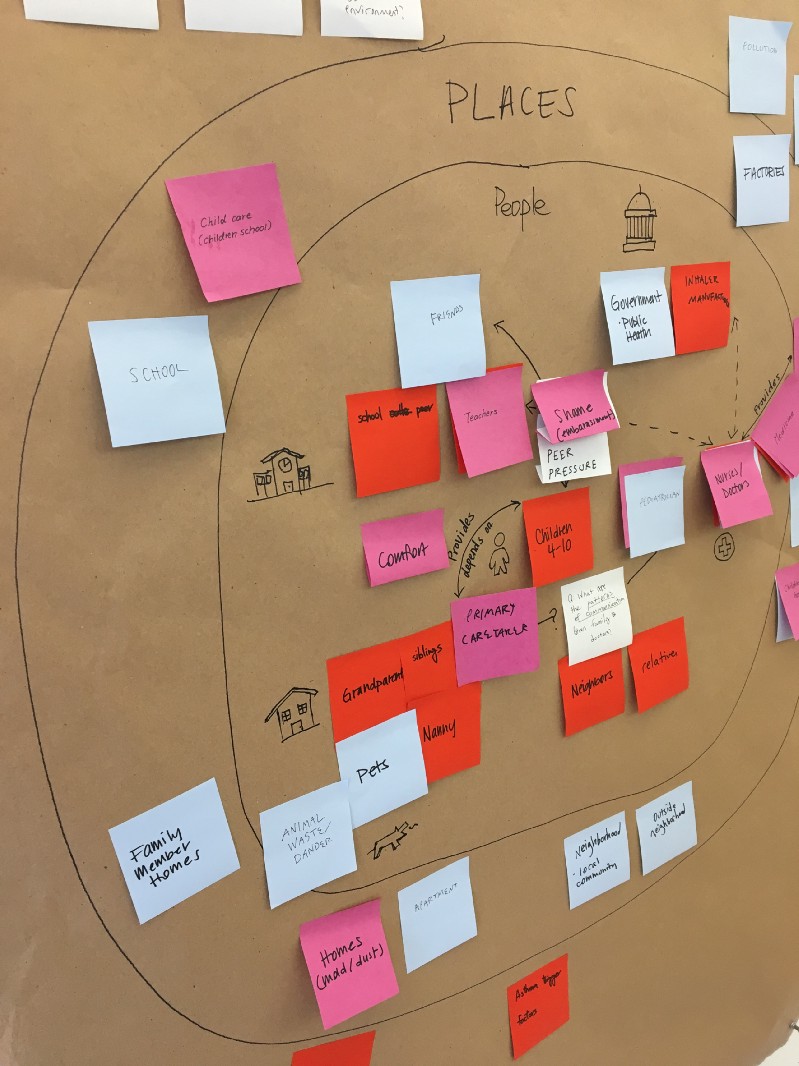 environment?
POLLUTION
PLACES
FACTORIES
People
Child care
(children school)
Government
·Public
Health
INHALER
FRIENDS
SCHOOL
school
peer
Teachers
Shame
(embarassment)
PEER
PRESSURE
Provides
Nurses/
Doctors
PEDIATRICIAN
Comfort
Provides
depends on
Children
4-10
Q What are
the patterns
of communication
from family to
PRIMARY
CARETAKER
?
siblings
Grandparent
Neighbors
relative
Nanny
Pets
ANIMAL
WASTE/
DANDER
Family
Member
Homes
Neighborhood
·local
community
Outside
neighborhood
APARTMENT
Homes
Asthma trigger
factors